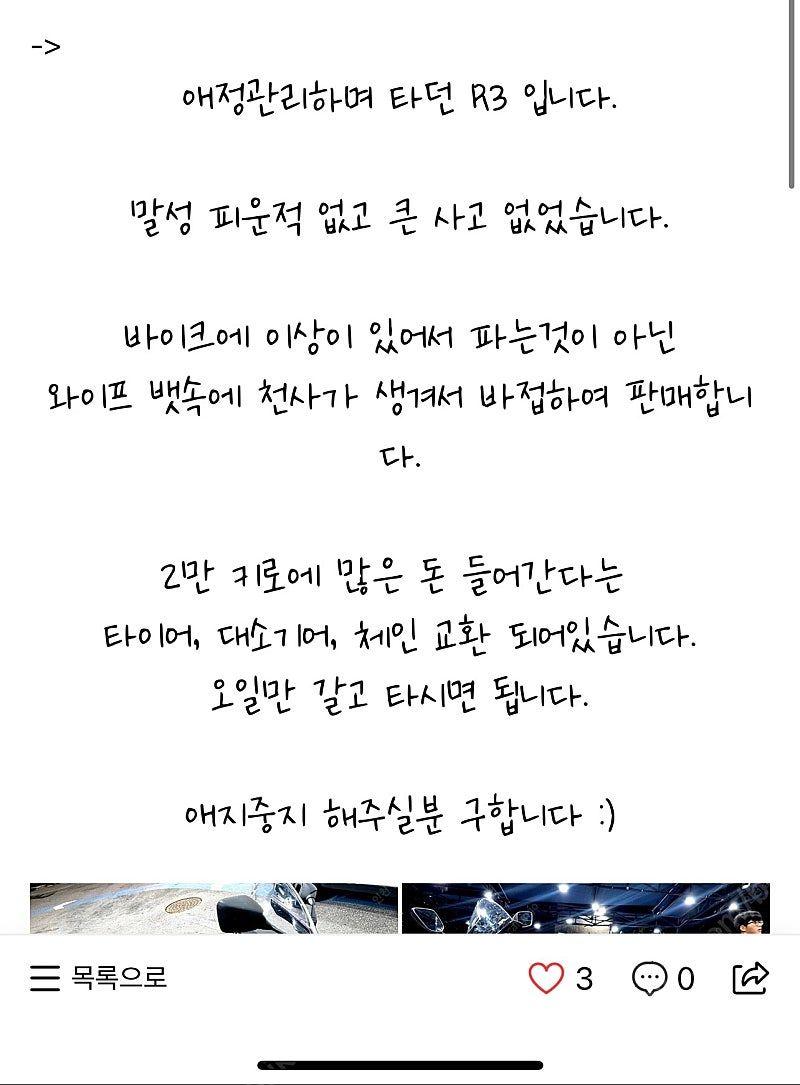 ->
애정관리하며 타던 R3 입니다.
말성 피운적 없고 큰 사고 없었습니다.
바이크에 이상이 있어서 파는것이 아닌
와이프 뱃속에 천사가 생겨서 바접하여 판매합니
다.
2만 키로에 많은 돈 들어간다는
타이어, 대소기어, 체인 교환 되어있습니다.
오일만 갈고 타시면 됩니다.
애지중지 해주실분 구합니다 :)
목록으로
3
0